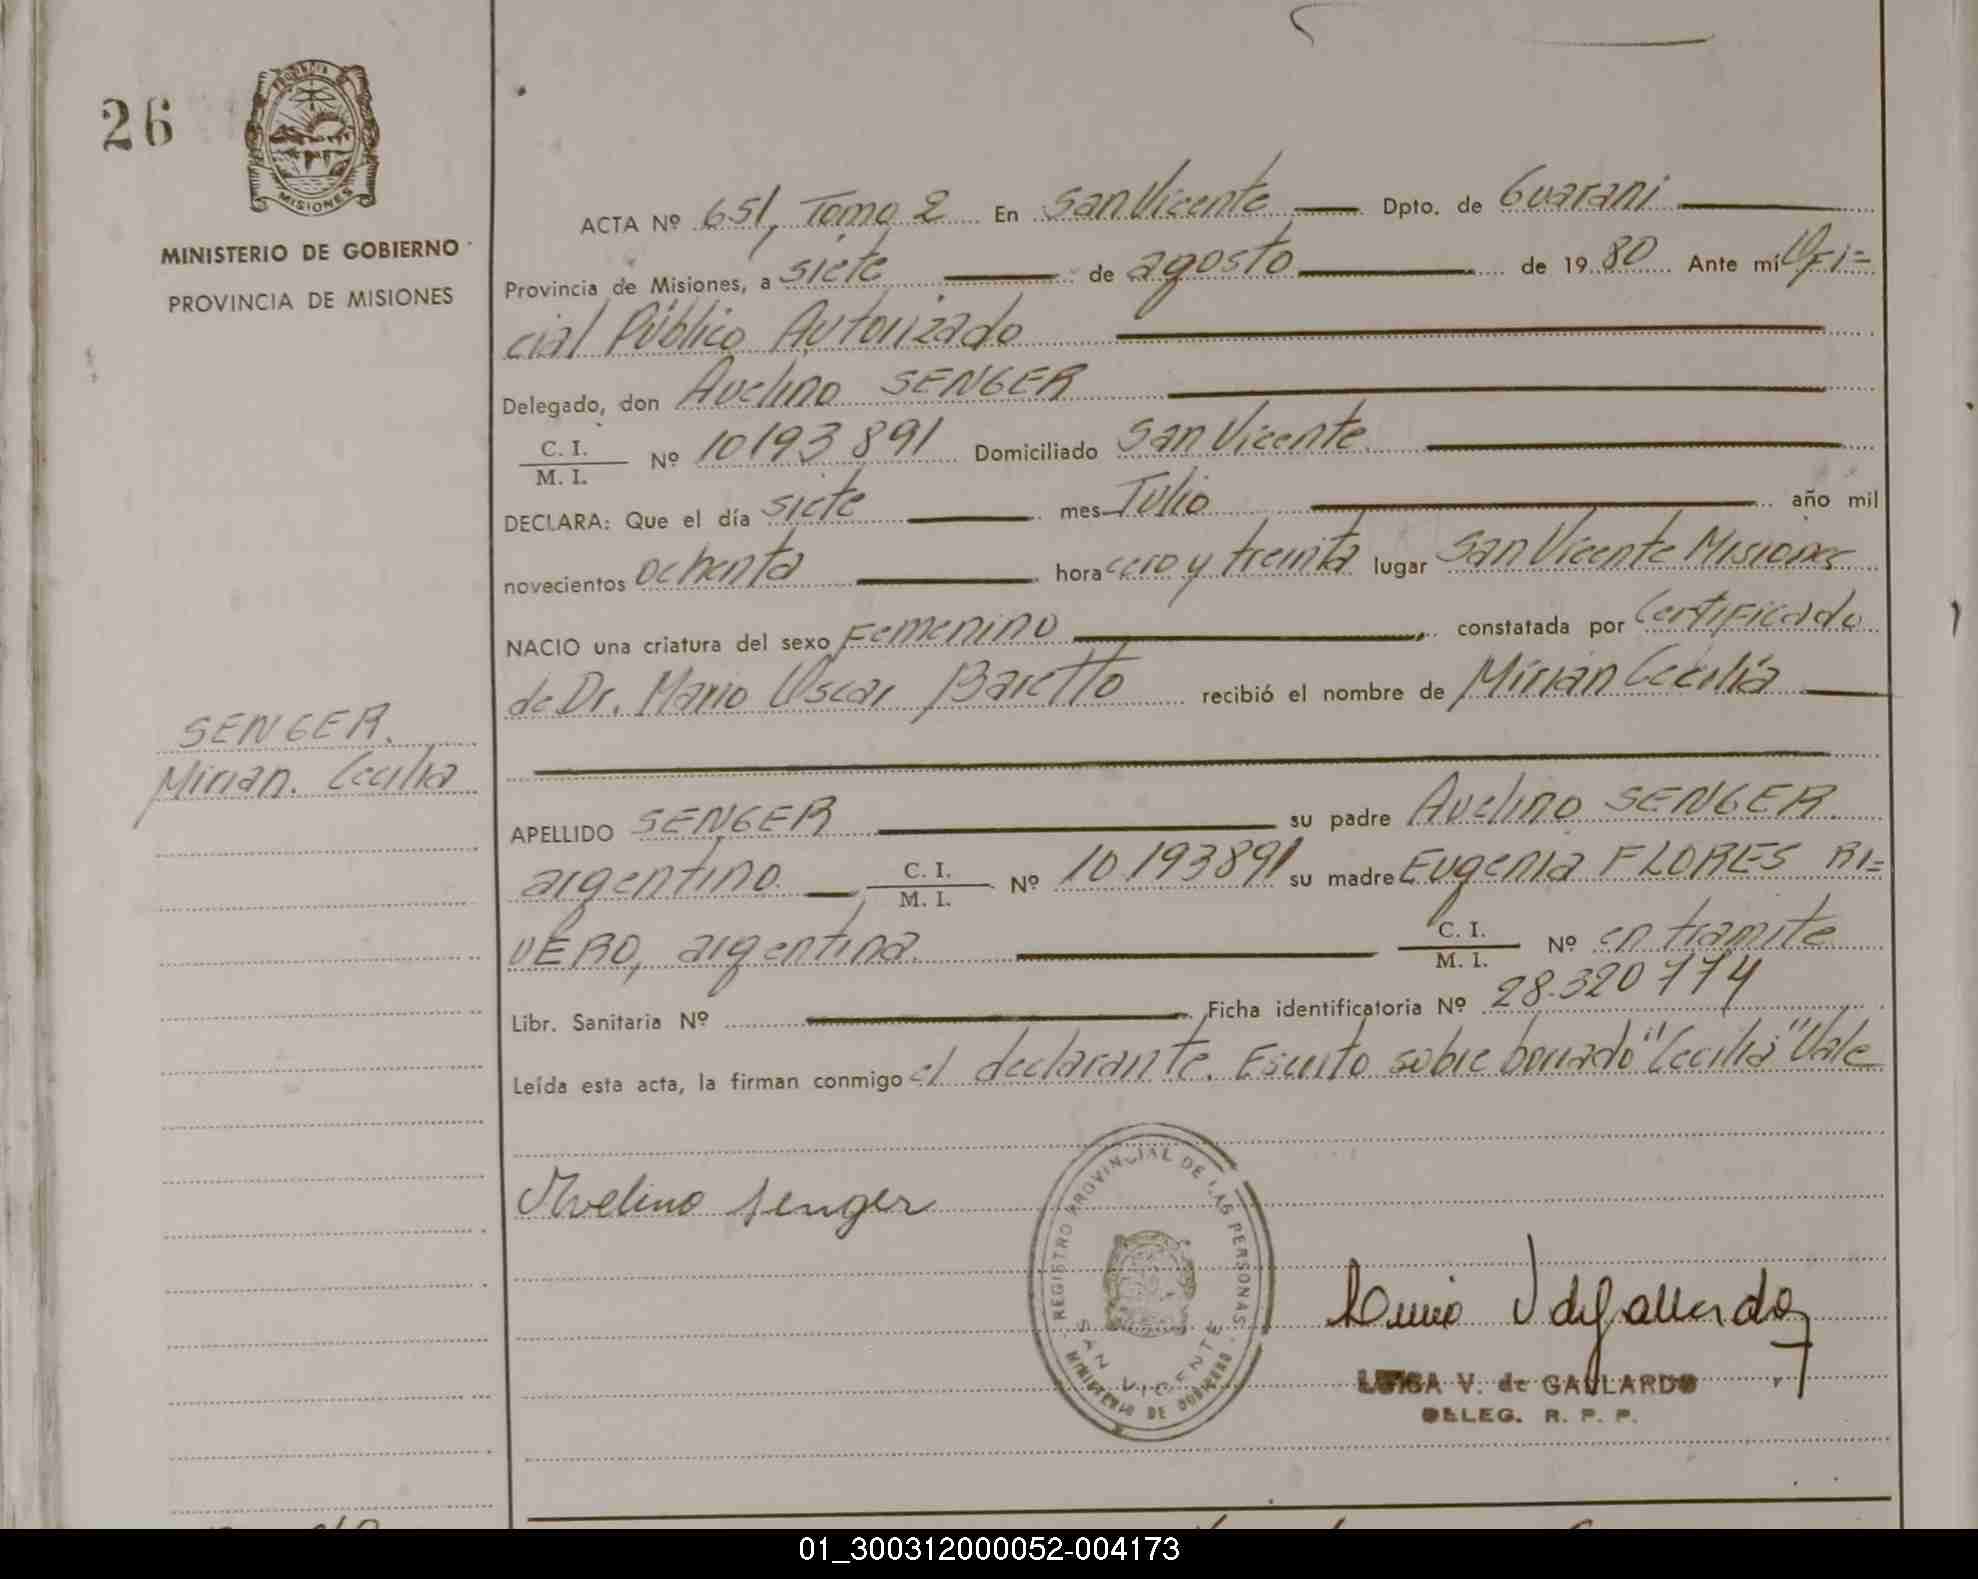 26
PROVINCIA
MISIONES
MINISTERIO DE GOBIERNO
PROVINCIA DE MISIONES
ACTA Nº 651, Tomo 2 En San Vicente Dpto. de Guarani
Provincia de Misiones, a siete de agosto de 1980 Ante mí Ofi=
cial Público Autorizado
Delegado, don Avelino SENGER
C. I.
M. I. Nº 10193891 Domiciliado San Vicente
DECLARA: Que el día siete mes Julio año mil
novecientos ochenta hora cero y treinta lugar San Vicente Misiones
NACIO una criatura del sexo Femenino constatada por Certificado
de Dr. Mario Oscar Baretto recibió el nombre de Mirian Cecilia
SENGER.
Mirian. Cecilia
APELLIDO SENGER su padre Avelino SENGER.
argentino C. I.
M. I. Nº 10.193891 su madre Eugenia FLORES RI=
VERO, argentina. C. I.
M. I. Nº en tramite
Libr. Sanitaria Nº Ficha identificatoria Nº 28.320774
Leída esta acta, la firman conmigo el declarante. Escrito sobre borrado "Cecilia" Vale
Avelino Senger
REGISTRO PROVINCIAL DE LAS PERSONAS
SAN VICENTE
MINISTERIO DE GOBIERNO
V de Gallardo
LUISA V. de GALLARDO
DELEG. R. P. P.
01_300312000052-004173